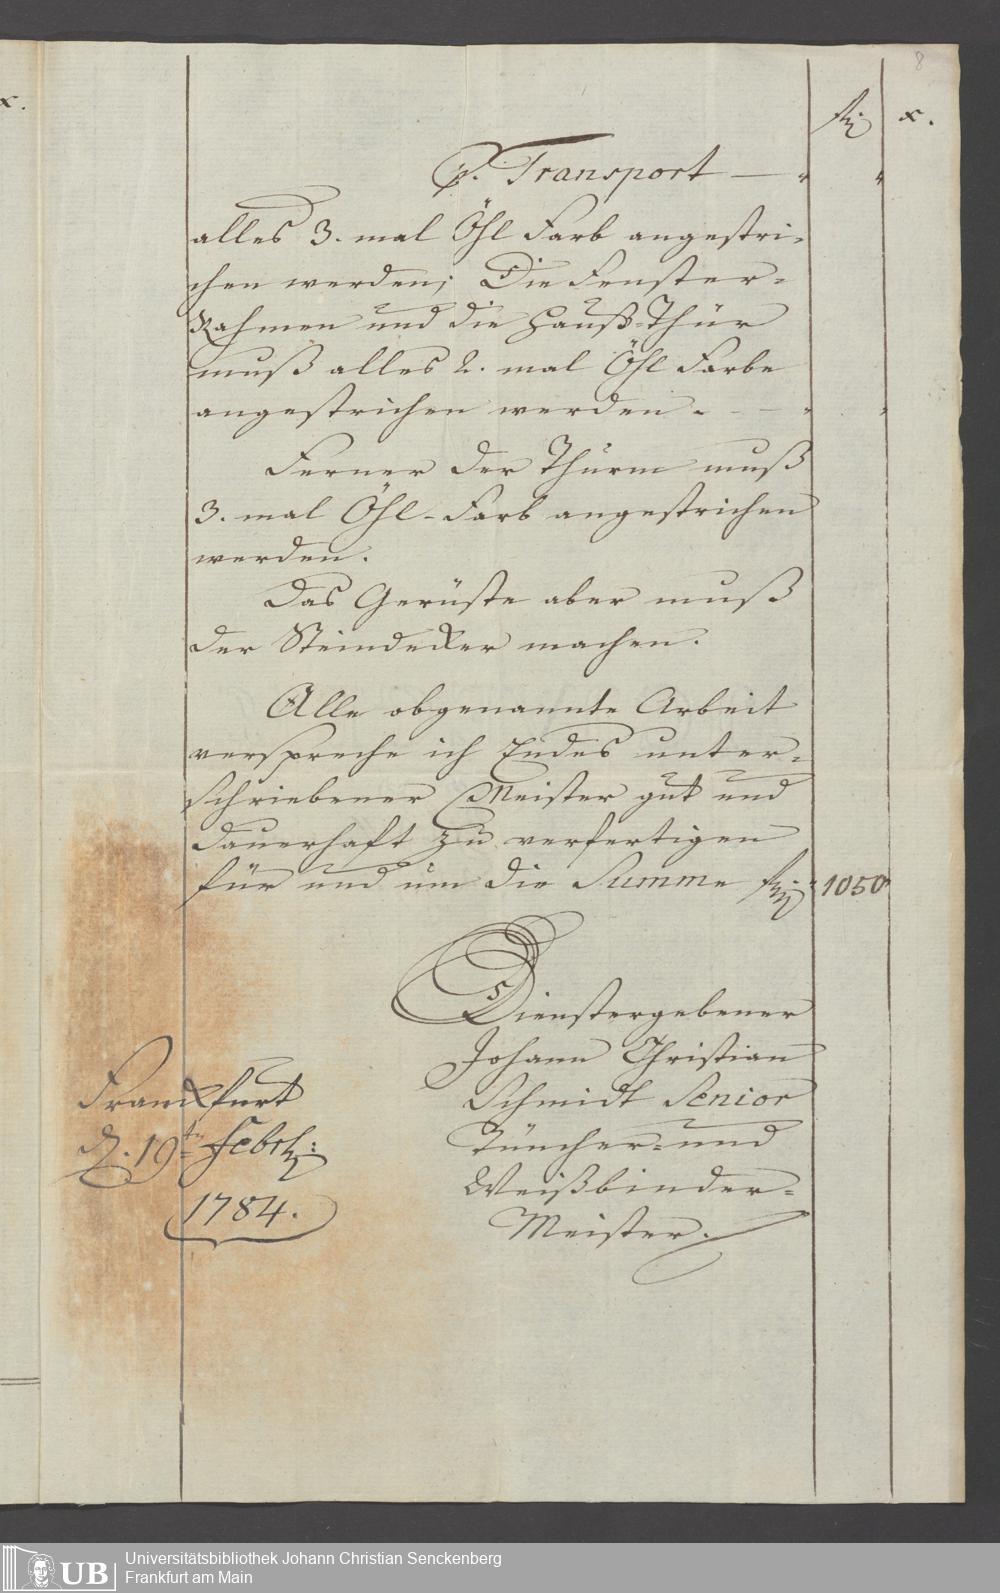 8
x.
fl: x.
P. Transport — " "
alles 3. mal Öhl Farb angestri-
chen werden; Die Fenster-
Rahmen und die Hauß-Thür
muß alles 2. mal Öhl Farbe
angestrichen werden. - — " "
Ferner der Thurm muß
3. mal Öhl-Farb angestrichen
werden.
Das Gerüste aber muß
der Steindecker machen.
Alle obgenannte Arbeit
verspreche ich Endes unter-
schriebener Meister gut und
dauerhaft zu verfertigen
für und um die Summe fl: 1050
Dienstergebener
Johann Christian
Schmidt Senior
Tüncher- und
Weißbinder-
Meister.
Franckfurt
d. 19tn Febr:
1784.
UB
Universitätsbibliothek Johann Christian Senckenberg
Frankfurt am Main